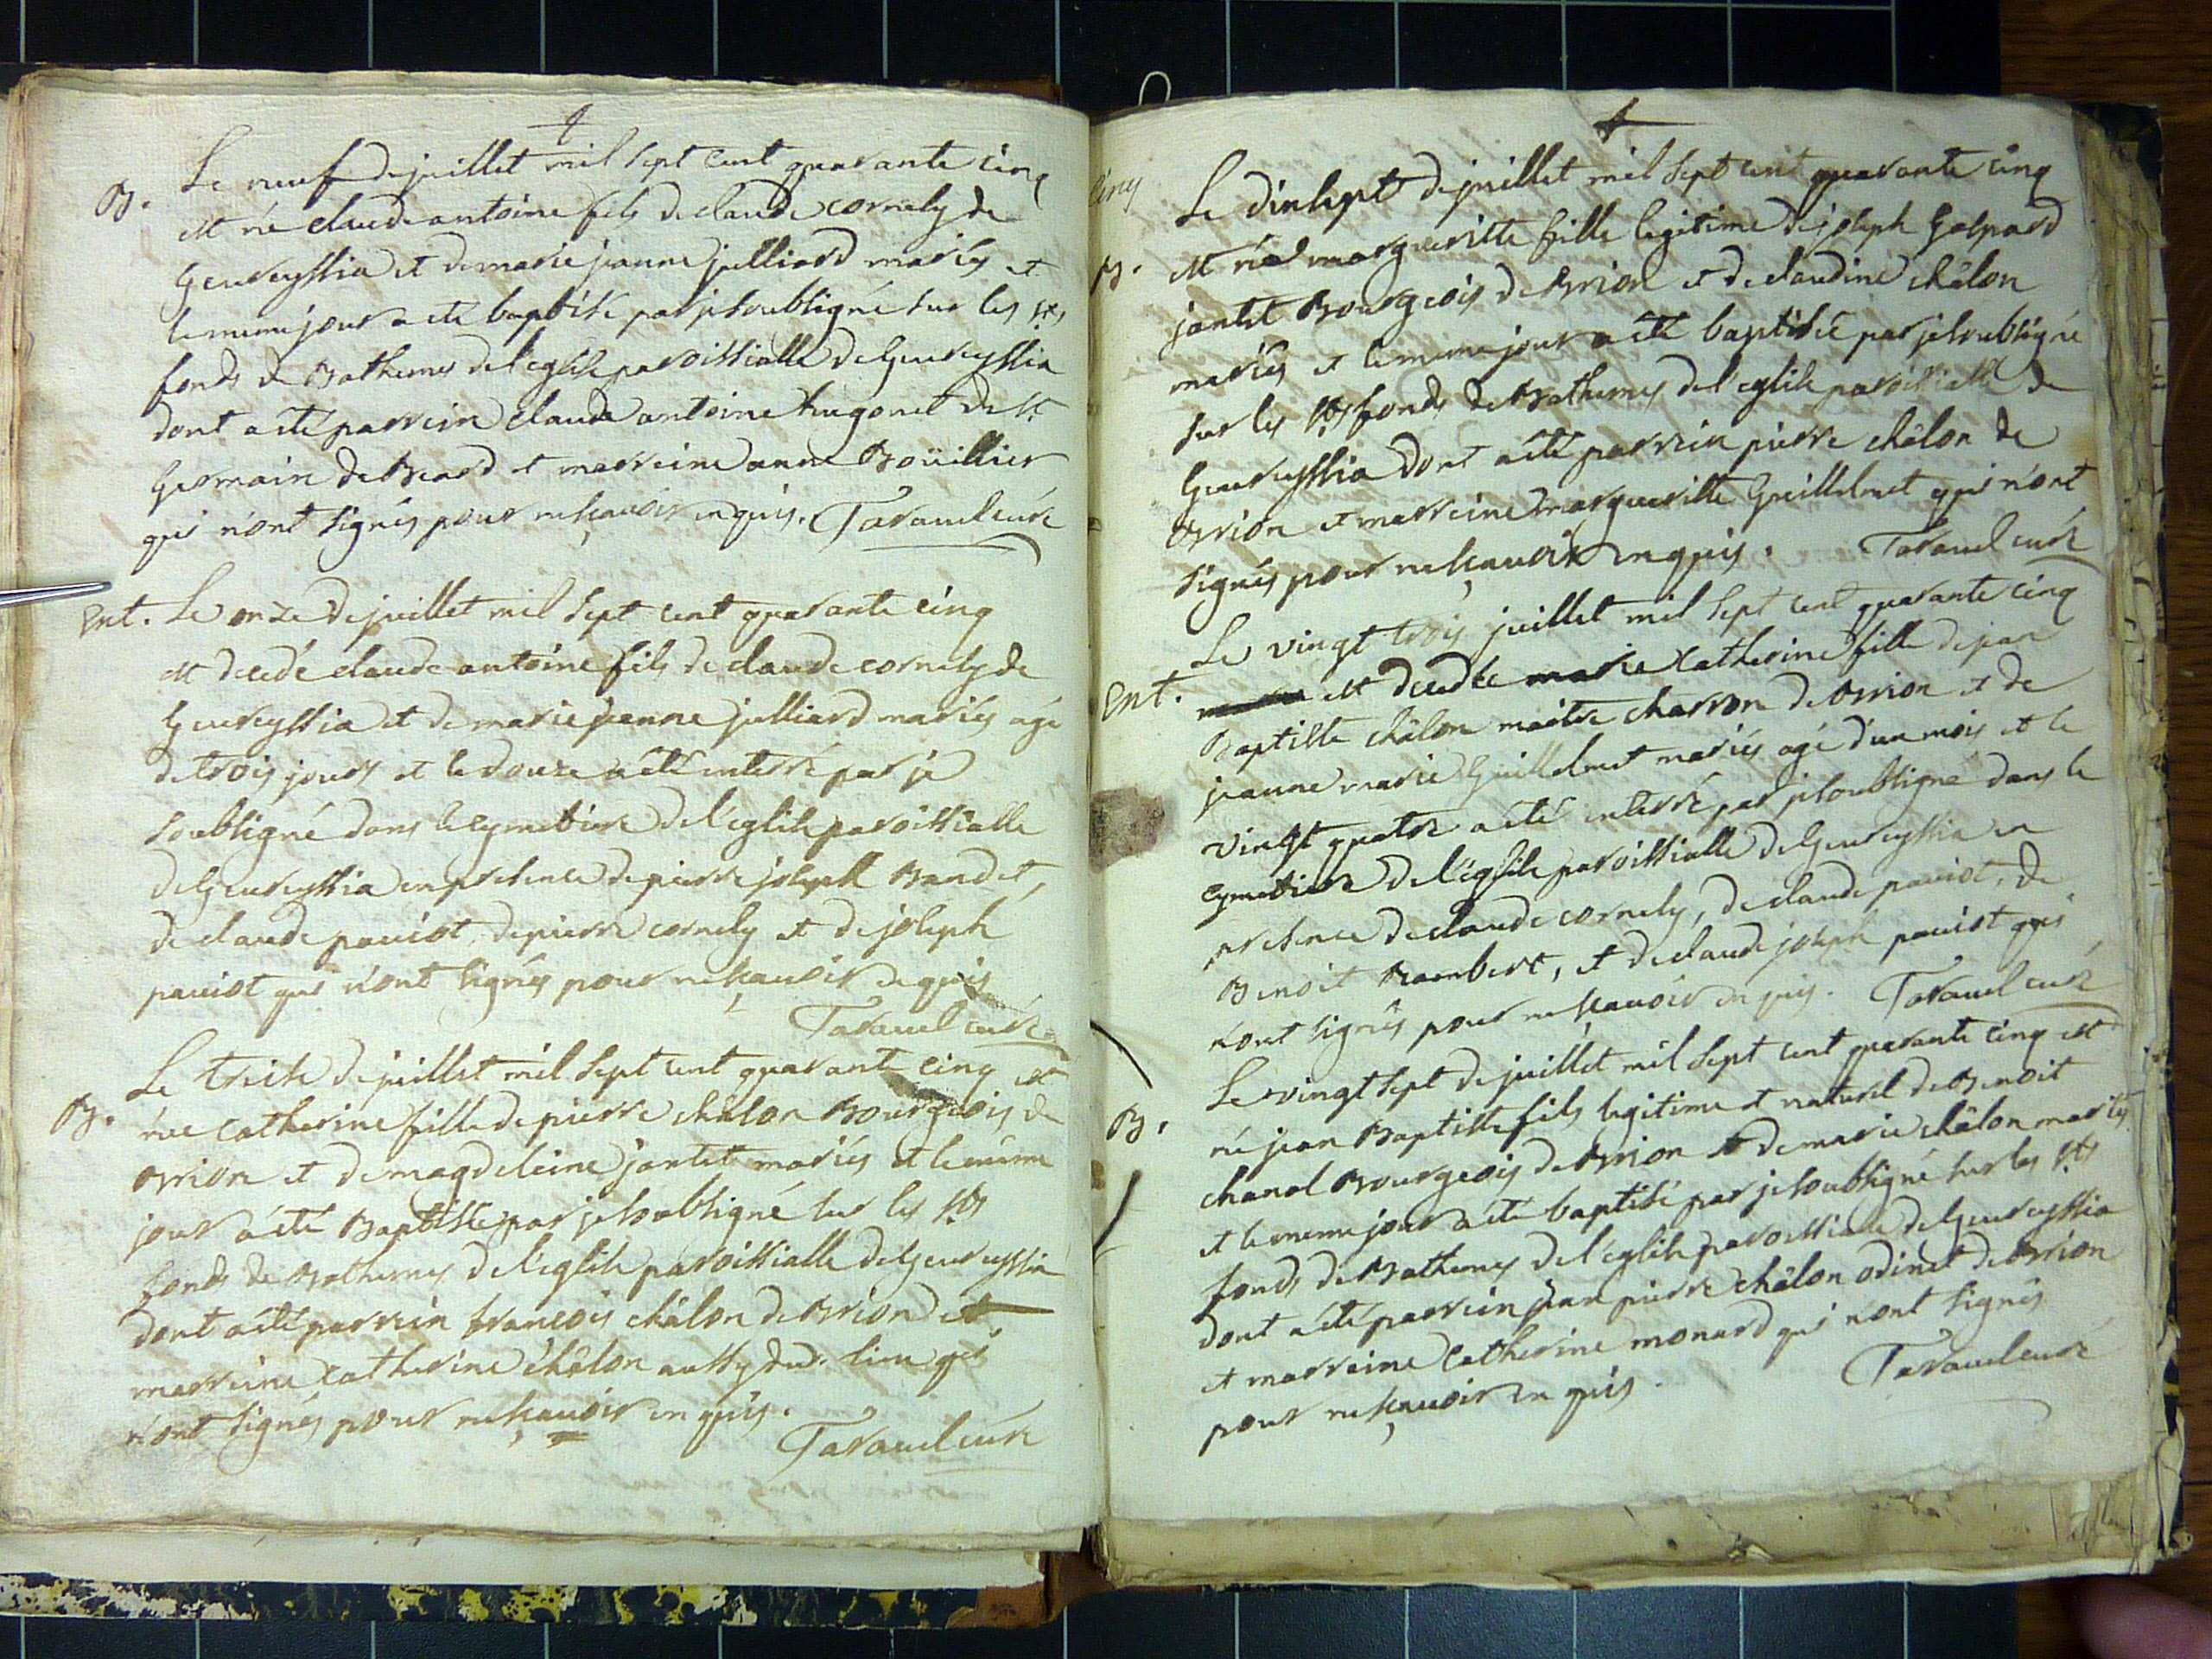 B.
Le neuf de juillet mil sept cent quarante cinq
est né claude antoine fils de claude cornely de
Geureyssia et de marie jeanne julliard mariés et
le meme jour a eté baptisé par je soubsigné sur les sts
fonds de Bathemes de l'eglise paroissialle de Geureyssia
dont a eté parrein claude antoine hugonet de st
Germain de Beard et marreine anne Boüillier
qui n'ont signés pour ne sçavoir enquis. Taravel curé
Ent. Le onze de juillet mil sept cent quarante cinq
est decedé claude antoine fils de claude cornely de
Geureyssia et de marie jeanne julliard mariés agé
de trois jours et le douze a eté enterré par je
soubsigné dans le cymettiere de l'eglise paroissialle
de Geureyssia en presence de pierre joseph Bandet,
de claude paviot, de pierre cornely et de joseph
paviot qui n'ont signés pour ne sçavoir de quis
Taravel curé
B.
Le treise de juillet mil sept cent quarante cinq est
née catherine fille de pierre châlon Bourgeois de
Brion et de magdeleine jantet mariés et le même
jour a eté Baptisée par je soubsigné sur les sts
fonds de Bathemes de l'eglise paroissialle de Geureyssia
dont a eté parrein françois châlon de Brion et
marreine catherine châlon aussy dud. lieu qui
n'ont signés pour ne sçavoir enquis.
Taravel curé
cinq
Le dixsept de juillet mil sept cent quarante cinq
B. est née margueritte fille legitime de joseph Gaspard
jantet Bourgeois de Brion et de claudine châlon
mariés et le meme jour a eté baptisée par je soubsigné
sur les sts fonds de Bathemes de l'eglise paroissialle de
Geureyssia dont a eté parrein pierre châlon de
Brion et marreine margueritte Guillelmet qui n'ont
signés pour ne sçavoir enquis. Taravel curé
Le vingt trois juillet mil sept cent quarante cinq
Ent. est decedée marie catherine fille de jean
Baptiste châlon maitre charron de Brion et de
jeanne marie Guillelmet mariés agé d'un mois et le
vingt quatre a eté enterré par je soubsigné dans le
cymettiere de l'eglise paroissialle de Geureyssia en
presence de claude cornely, de claude paviot, de
Benoit Raembert, et de claude joseph paviot qui
n'ont signés pour ne sçavoir enquis. Taravel curé
Le vingt sept de juillet mil sept cent quarante cinq est
B. né jean Baptiste fils legitime et naturel de Benoit
chanal Bourgeois de Brion et de marie châlon mariés
et le meme jour a eté baptisé par je soubsigné sur les sts
fonds de Bathemes de l'eglise paroissialle de Geureyssia
dont a eté parrein jean pierre châlon odinet de Brion
et marreine catherine monard qui n'ont signés
pour ne sçavoir enquis. Taravel curé